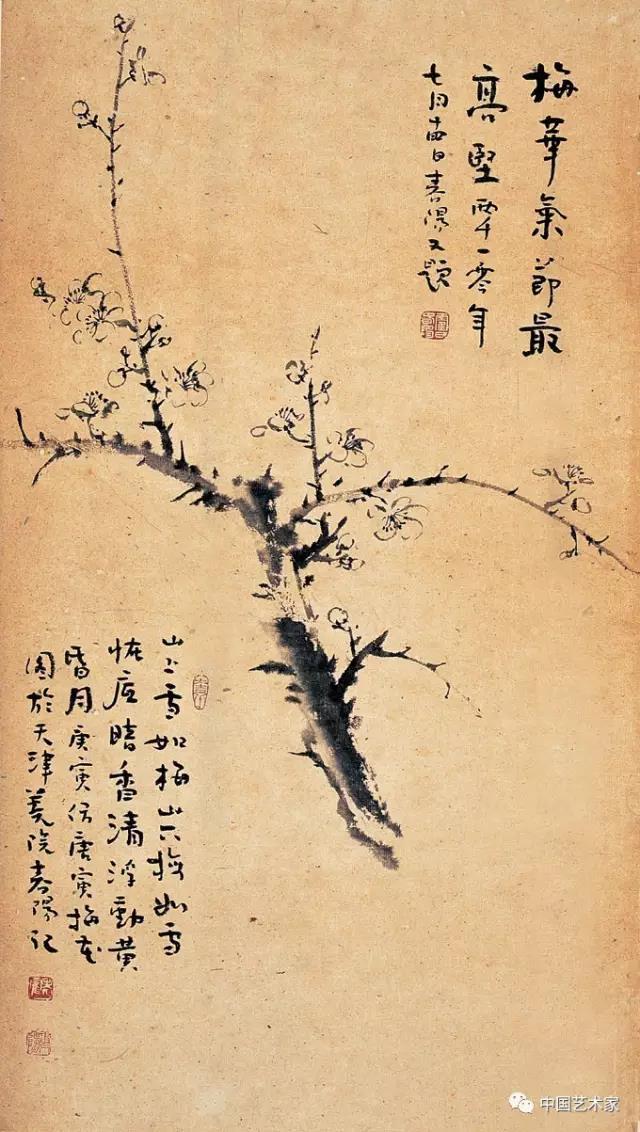 梅華氣節最
高堅 兩千一零年
七月十四日春陽又題
山上雪如梅山下梅如雪
恠底暗香清浮動黃
昏月庚寅仿唐寅梅花
圖於天津美院春陽記
中国艺术家